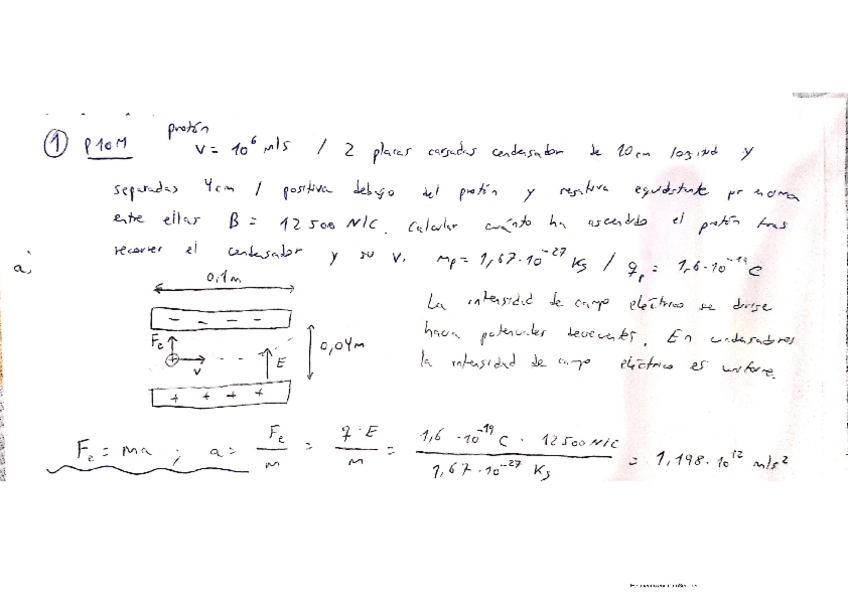 ① P10M protón
V = 10⁶ m/s / 2 placas cargadas condensador de 10 cm longitud y
separadas 4 cm / positiva debajo del protón y negativa equidistante por encima
entre ellas B = 12500 N/C. Calcular cuánto ha ascendido el protón tras
recorrer el condensador y su v. mp = 1,67·10⁻²⁷ Kg / qp = 1,6·10⁻¹⁹ C
a)
0,1m
- - - -
Fe
+
v
E
0,04m
+ + + +
La intensidad de campo eléctrico se dirige
hacia potenciales decrecientes. En condensadores
la intensidad de campo eléctrico es uniforme.
Fe = ma ; a = Fe/m = q·E/m = 1,6·10⁻¹⁹ C · 12500 N/C / 1,67·10⁻²⁷ Kg = 1,198·10¹² m/s²